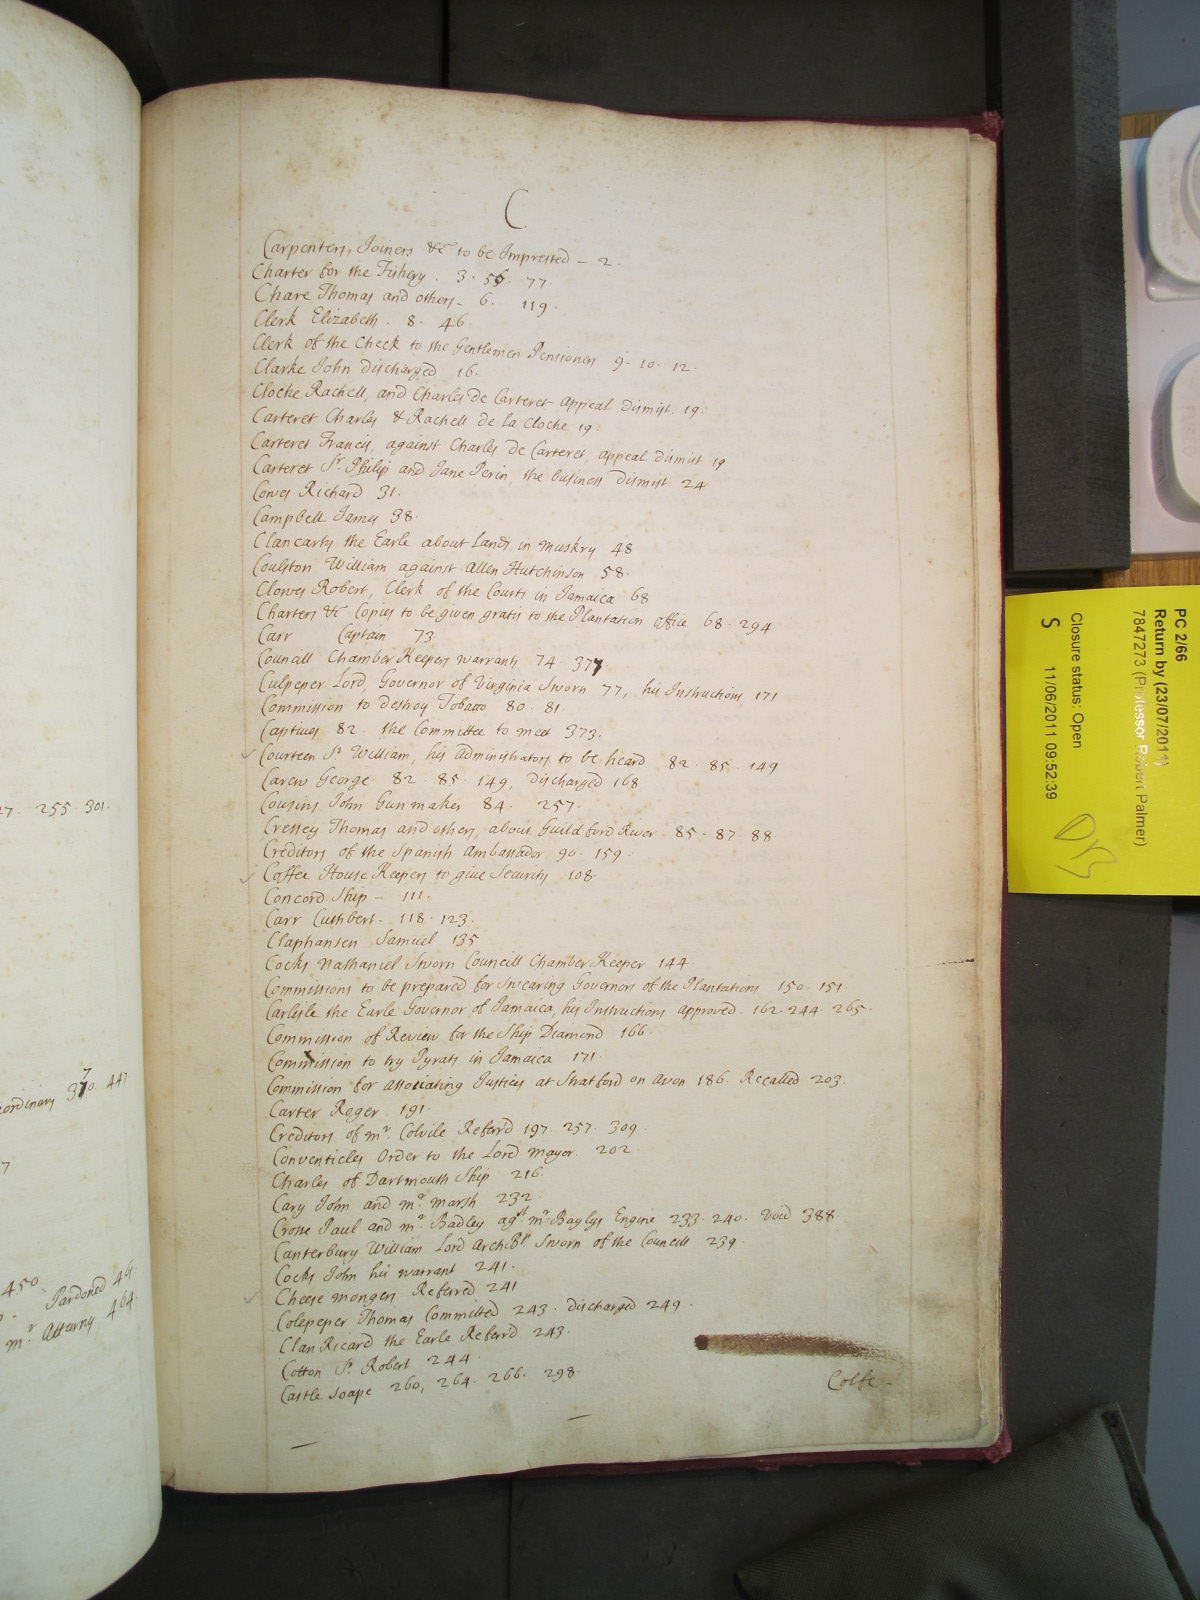 C
Carpenters, Joiners &c to be Imprested - 2.
Charter for the Fishery. 3. 56. 77.
Chare Thomas and others - 6. 119.
Clerk Elizabeth. 8. 46.
Clerk of the Check to the Gentlemen Pensioners 9. 10. 12.
Clarke John discharged 16.
Cloche Rachell, and Charles de Carteret appeal Dismist. 19.
Carteret Charles & Rachell de la Cloche 19.
Carteret Francis, against Charles de Carteret, appeal dismist 19
Carteret Sr. Philip and Jane Perin, the business dismist 24
Cowes Richard 31.
Campbell James 38.
Clancarty the Earle about Lands in muskry 48
Coulston William against Allen Hutchinson 58.
Clowes Robert, Clerk of the Courts in Jamaica 68
Charters &c Copies to be given gratis to the Plantation office 68. 294
Carr Captain 73
Councill Chamber Keepers warrants 74. 377.
Culpeper Lord, Governor of Virginia Sworn 77, his Instructions 171
Commission to destroy Tobacco 80. 81.
Captives 82. the Committee to meet 373.
Courteen Sr. William, his Administrators to be heard 82. 85. 149
Carew George 82. 85. 149, discharged 168
Cousins John Gunmaker 84. 257.
Cressey Thomas and others, about Guildford River 85. 87. 88
Creditors of the Spanish Ambassador 90. 159.
Coffee House Keepers to give Security 108.
Concord Ship - 111.
Carr Cuthbert. 118. 123.
Claphansen Samuel 135
Cocks Nathaniel Sworn Councill Chamber Keeper 144
Commissions to be prepared for Swearing Governors of the Plantations 150. 151.
Carlisle the Earle Governor of Jamaica, his Instructions approved. 162. 244. 265.
Commission of Review for the Ship Diamond 166.
Commission to try Pyrats in Jamaica 171.
Commission for associating Justices at Stratford on Avon 186. Recalled 203.
Carter Roger 191.
Creditors of mr. Colvile Referr'd 197. 257. 309.
Conventicles Order to the Lord Mayor. 202
Charles of Dartmouth Ship 216.
Cary John and mr. marsh 232.
Crosse Paul and mr. Badley agst. mr. Baylys Engine 233. 240. Void 388.
Canterbury William Lord Archbp. Sworn of the Councill 239.
Cocks John his warrant 241.
Cheese mongers Referred 241
Colepeper Thomas Committed 243. discharged 249.
Clan Ricard the Earle Referr'd 243.
Cotton Sr. Robert 244.
Castle soape 260, 264. 266. 298.
Colfe
27. 255. 301.
370. 447
7
450
Pardoned
mr. Atturny 464
PC 2/66
Return by (23/07/2011)
7847273 (Professor Robert Palmer)
Closure status: Open
S 11/06/2011 09:52:39